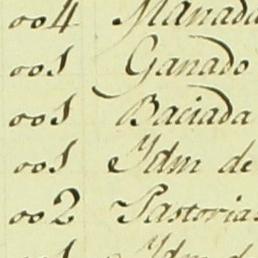 004 Manada
001 Ganado
001 Baciada
001 Ydm de
002 Pastorias
001 Ydm d